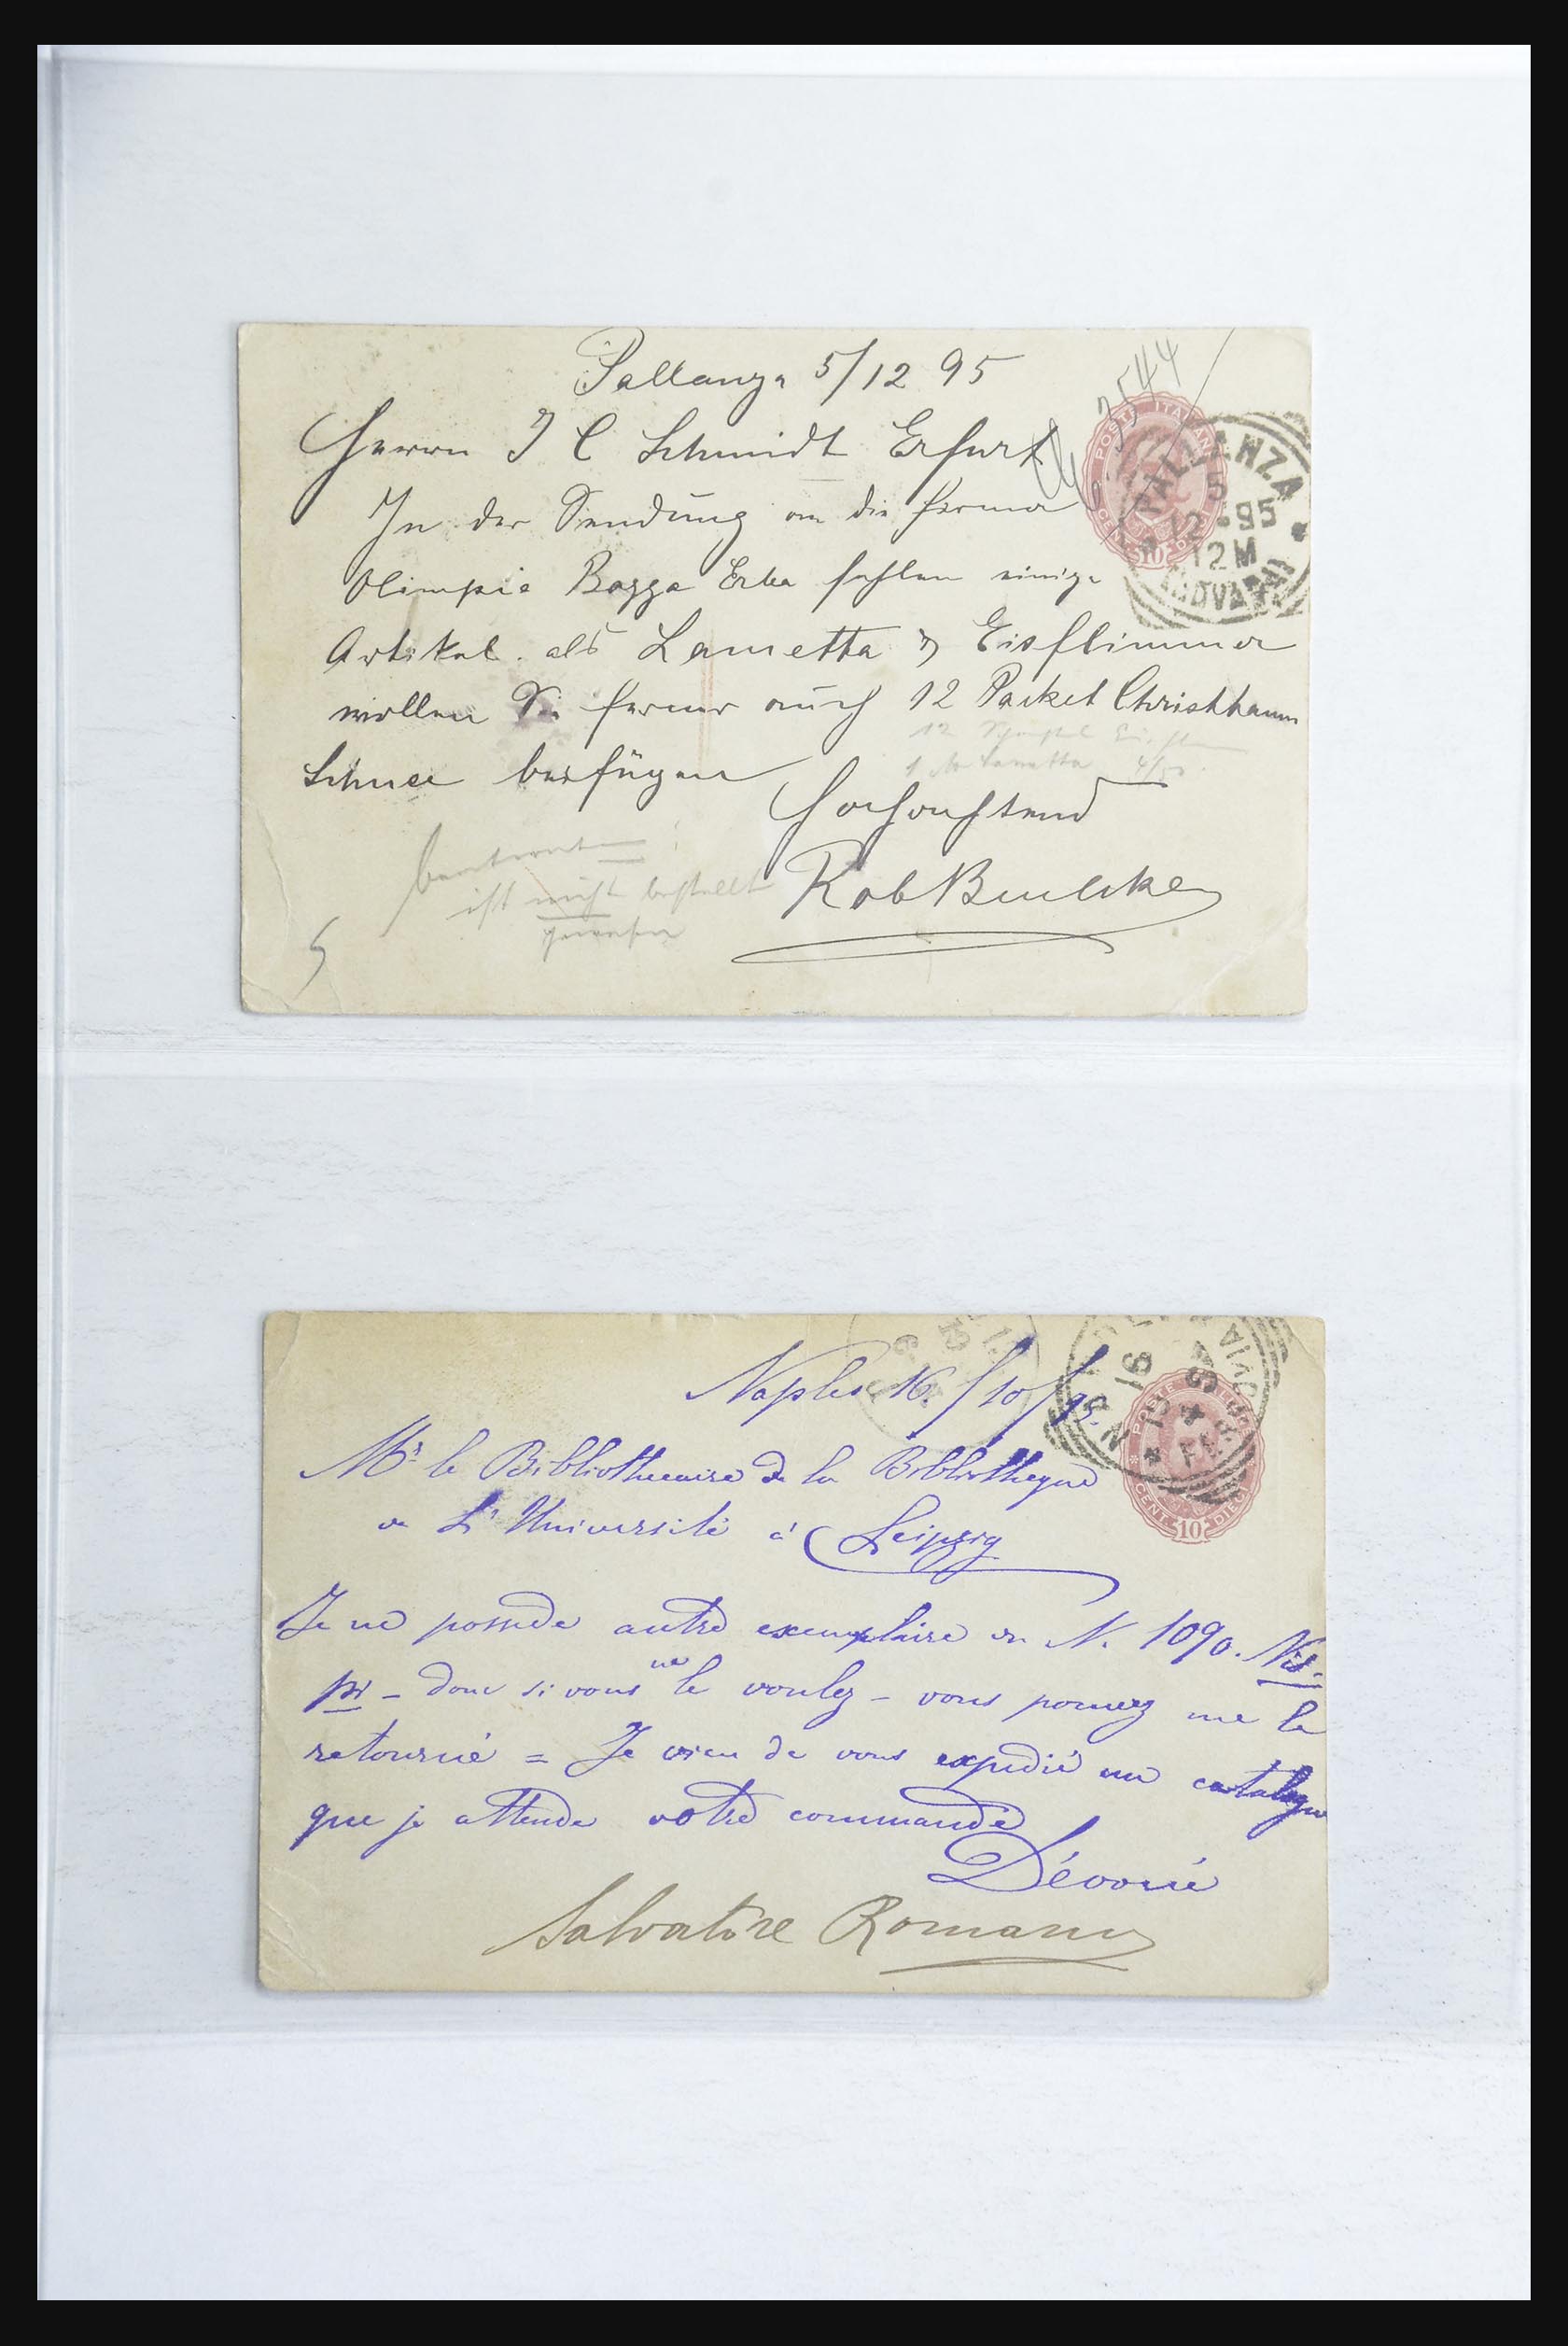 Pallanza 5/12 95
Herrn J C Schmidt Erfurt
3544
In der Sendung an die Firma
Olimpia Bazza Erba fehlen einige
Artikel. als Lametta & Eisflimmer
wollen Sie ferner auch 12 Packet Christbaum
Schnee beifügen
12 1 Lametta
Hochachtend
Rob
beantworten
ist nicht bestellt
gewesen
5
POSTE ITALIANE
CENT. 10 DIECI
PALLANZA
5
12 95
12 M
(NOVARA)
Naples 16/10/95
Mr le Bibliothecaire de la Bibliotheque
de L' Université à Leipzig
Je ne possede autre exemplaire du N. 1090.
donc si vous ne le voulez – vous pouvez me le
retourné = Je vien de vous expedié un catalogue
que je attende votre commande
Dévoué
Salvatore Romano
POSTE ITALIANE
CENT. 10 DIECI
NAPOLI
16
10
95
FERROVIA